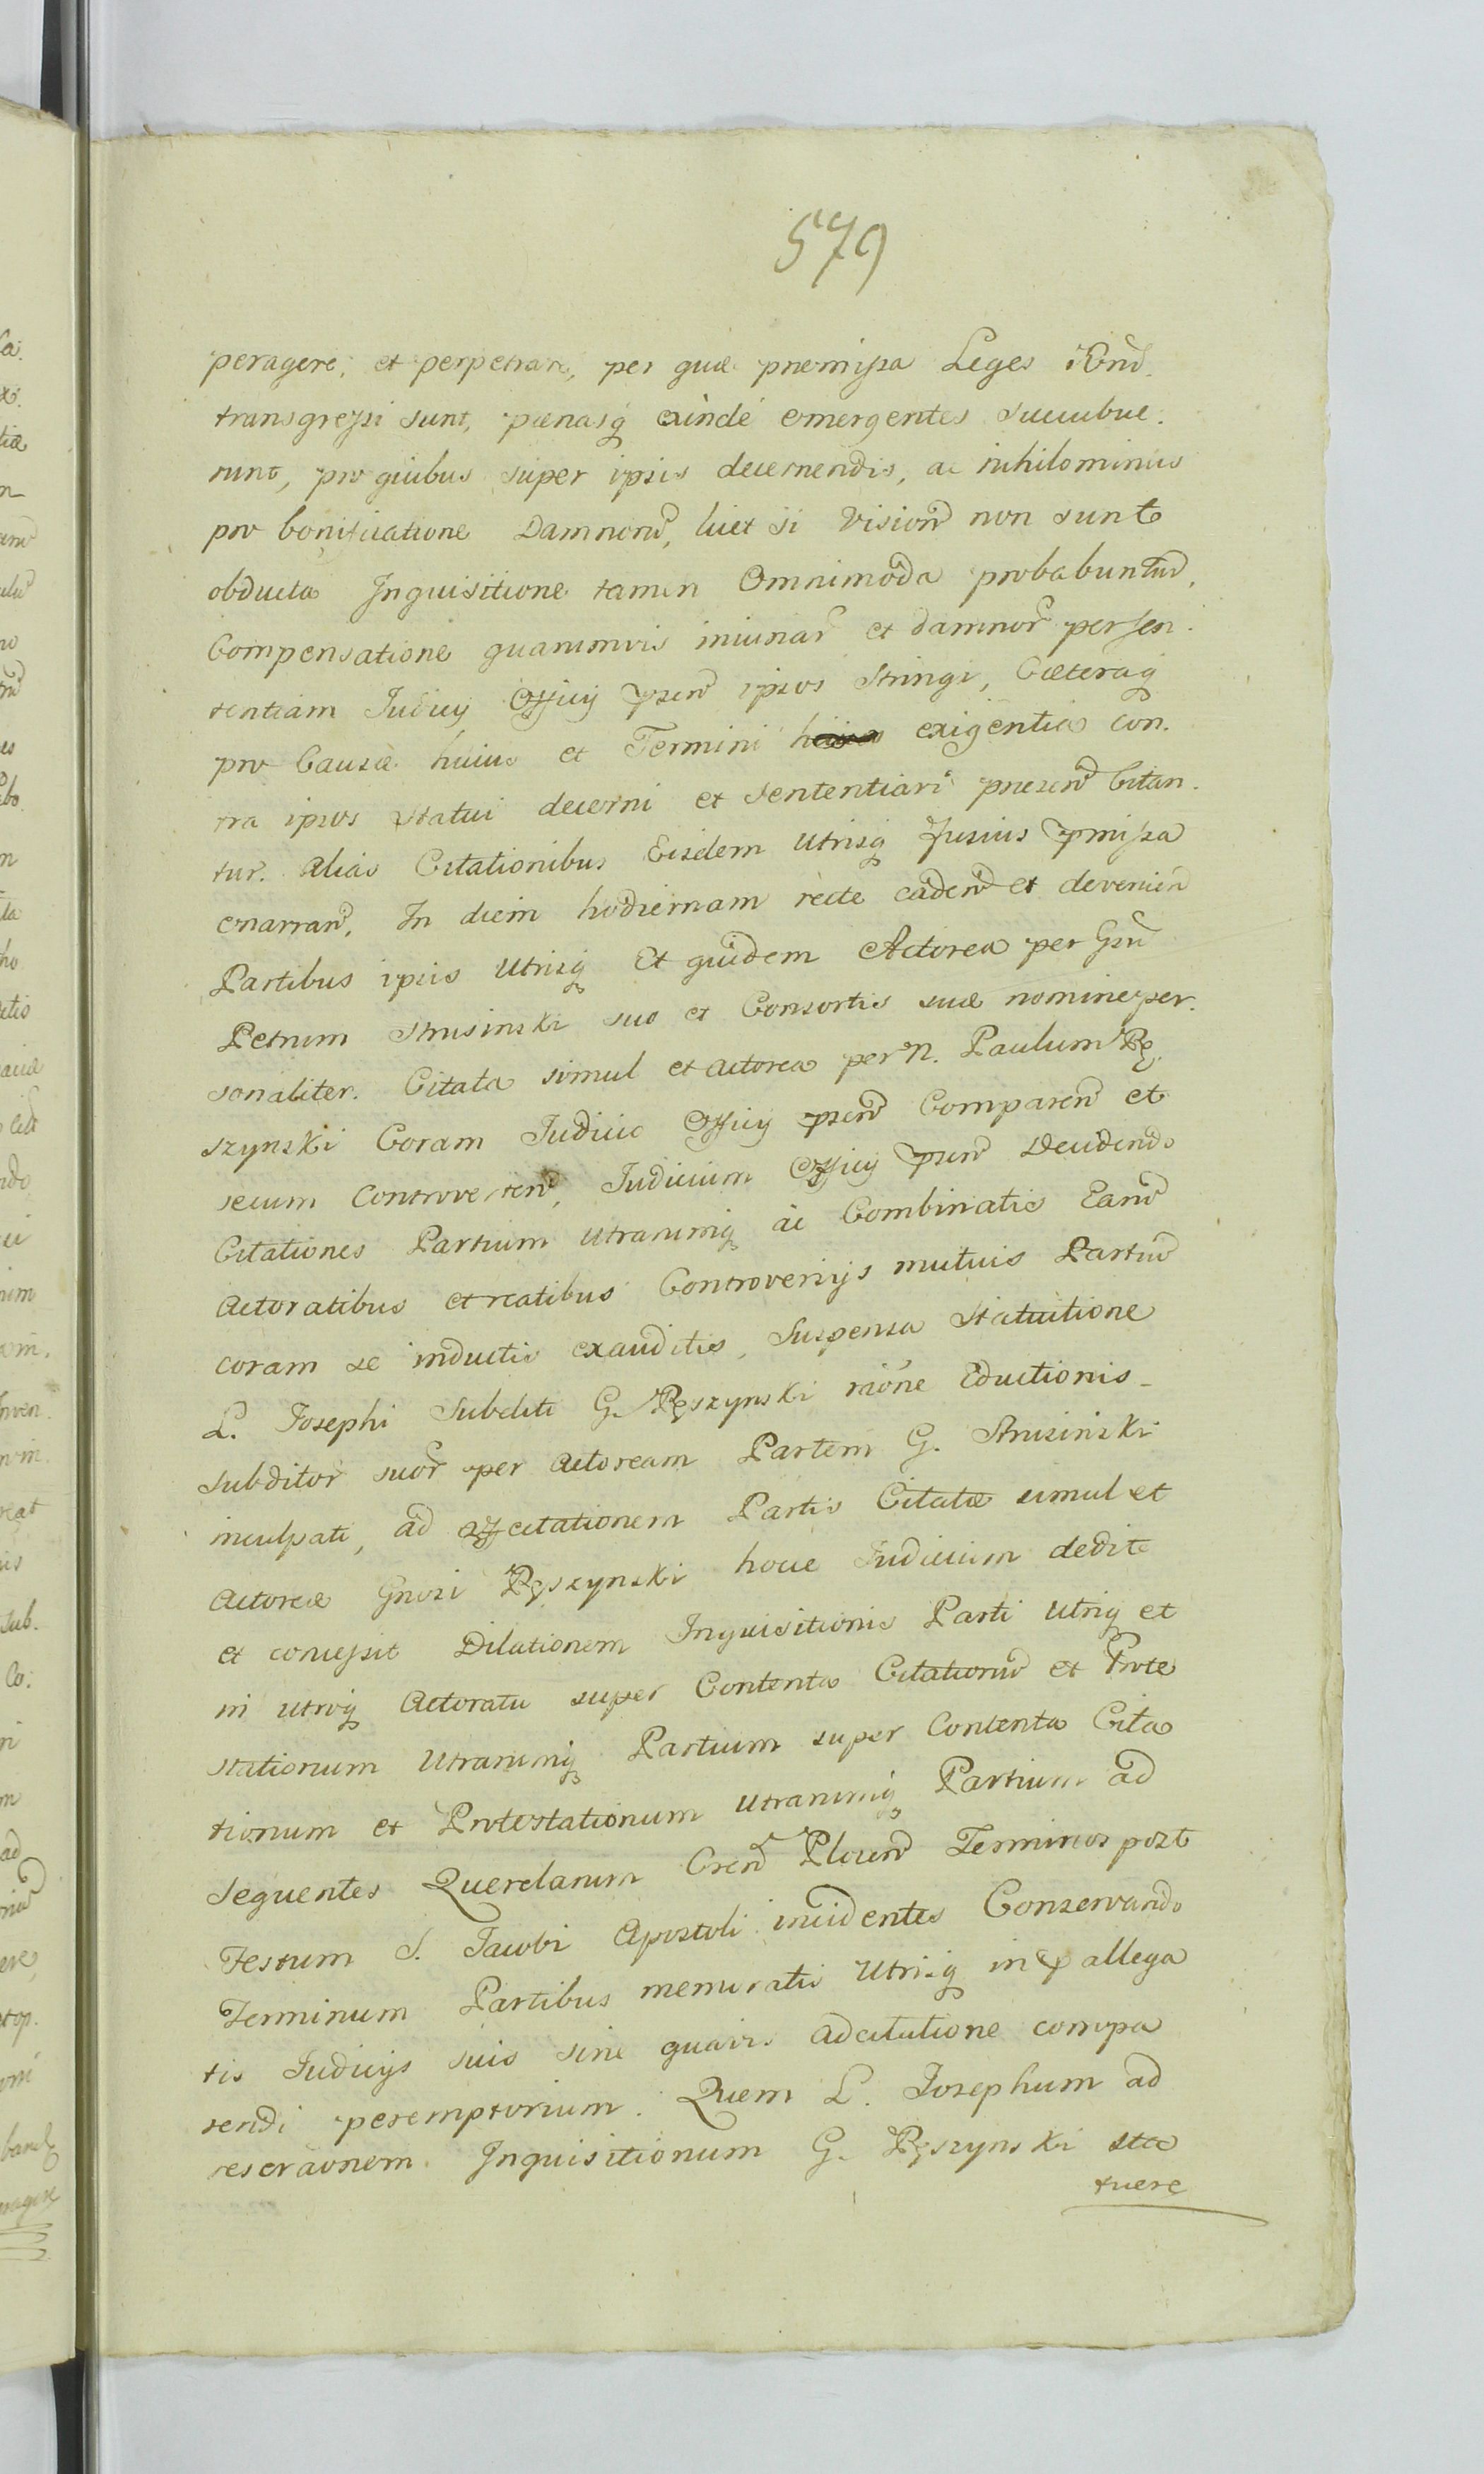 579
peragere, et perpetrare, per quæ præmissa Leges Rñd.
transgressi sunt, pænasq exinde emergentes succubue.
runt, pro quibus super ipsis decernendis, ac nihilominus
pro bonificatione Damnorũ, licet si Visionũ non sunt
obducta Inquisitione tamen Omnimoda probabuntur,
Compensatione quarumvis iniuriar et damnor per sen.
tentiam Judicÿ Officÿ pseñ ipsos Stringi, Cæteraq
pro Causæ huius et Termini exigentia con.
tra ipsos statui decerni et sententiari præseñ Citan.
tur. Alias Citationibus Eisdem Utrisq fusius pmissa
enarrañ, In diem hodiernam recte cadeñ et devenieñ
Partibus ipsis Utrisq Et quidem Actorea per Gsũ
Petrum Strusinski suo et Consortis suæ nomine per.
sonaliter. Citata simul et actorea per N. Paulum Rę
szynski Coram Judicio Officÿ pseñ Compareñ et
secum Controverteñ, Judicium Officÿ pseñ Decidendo
Citationes Partium utrarumq ac Combinatis Earũ
Actoratibus et reatibus Controversÿs mutuis Partiũ
coram se inductis exauditis, Suspensa Statuitione
L. Josephi Subditi G. Ręszynski raõne Eductionis
subditor suor per Actoream Partem G. Strusinski
inculpati, ad affectationem Partis Citatæ simul et
Actoreæ Gnosi Ręszynski hocce Judicium dedit
et concessit Dilationem Inquisitionis Parti Utriq et
in utroq Actoratu super Contenta Citationũ et Prote
stationum Utrarumq Partium super Contenta Cita
tionum et Protestationum utrarumq Partium ad
sequentes Querelarum Creñ Ploceñ Terminos post
Festum S. Jacobi Apostoli incidentes Conservando
Terminum Partibus memoratis Utrisq in p allega
tis Judicÿs suis sine quavis adcitatione compa
rendi peremptorium. Quem L. Josephum ad
reseraõnem Inquisitionum G. Ręszynski sta
tuere